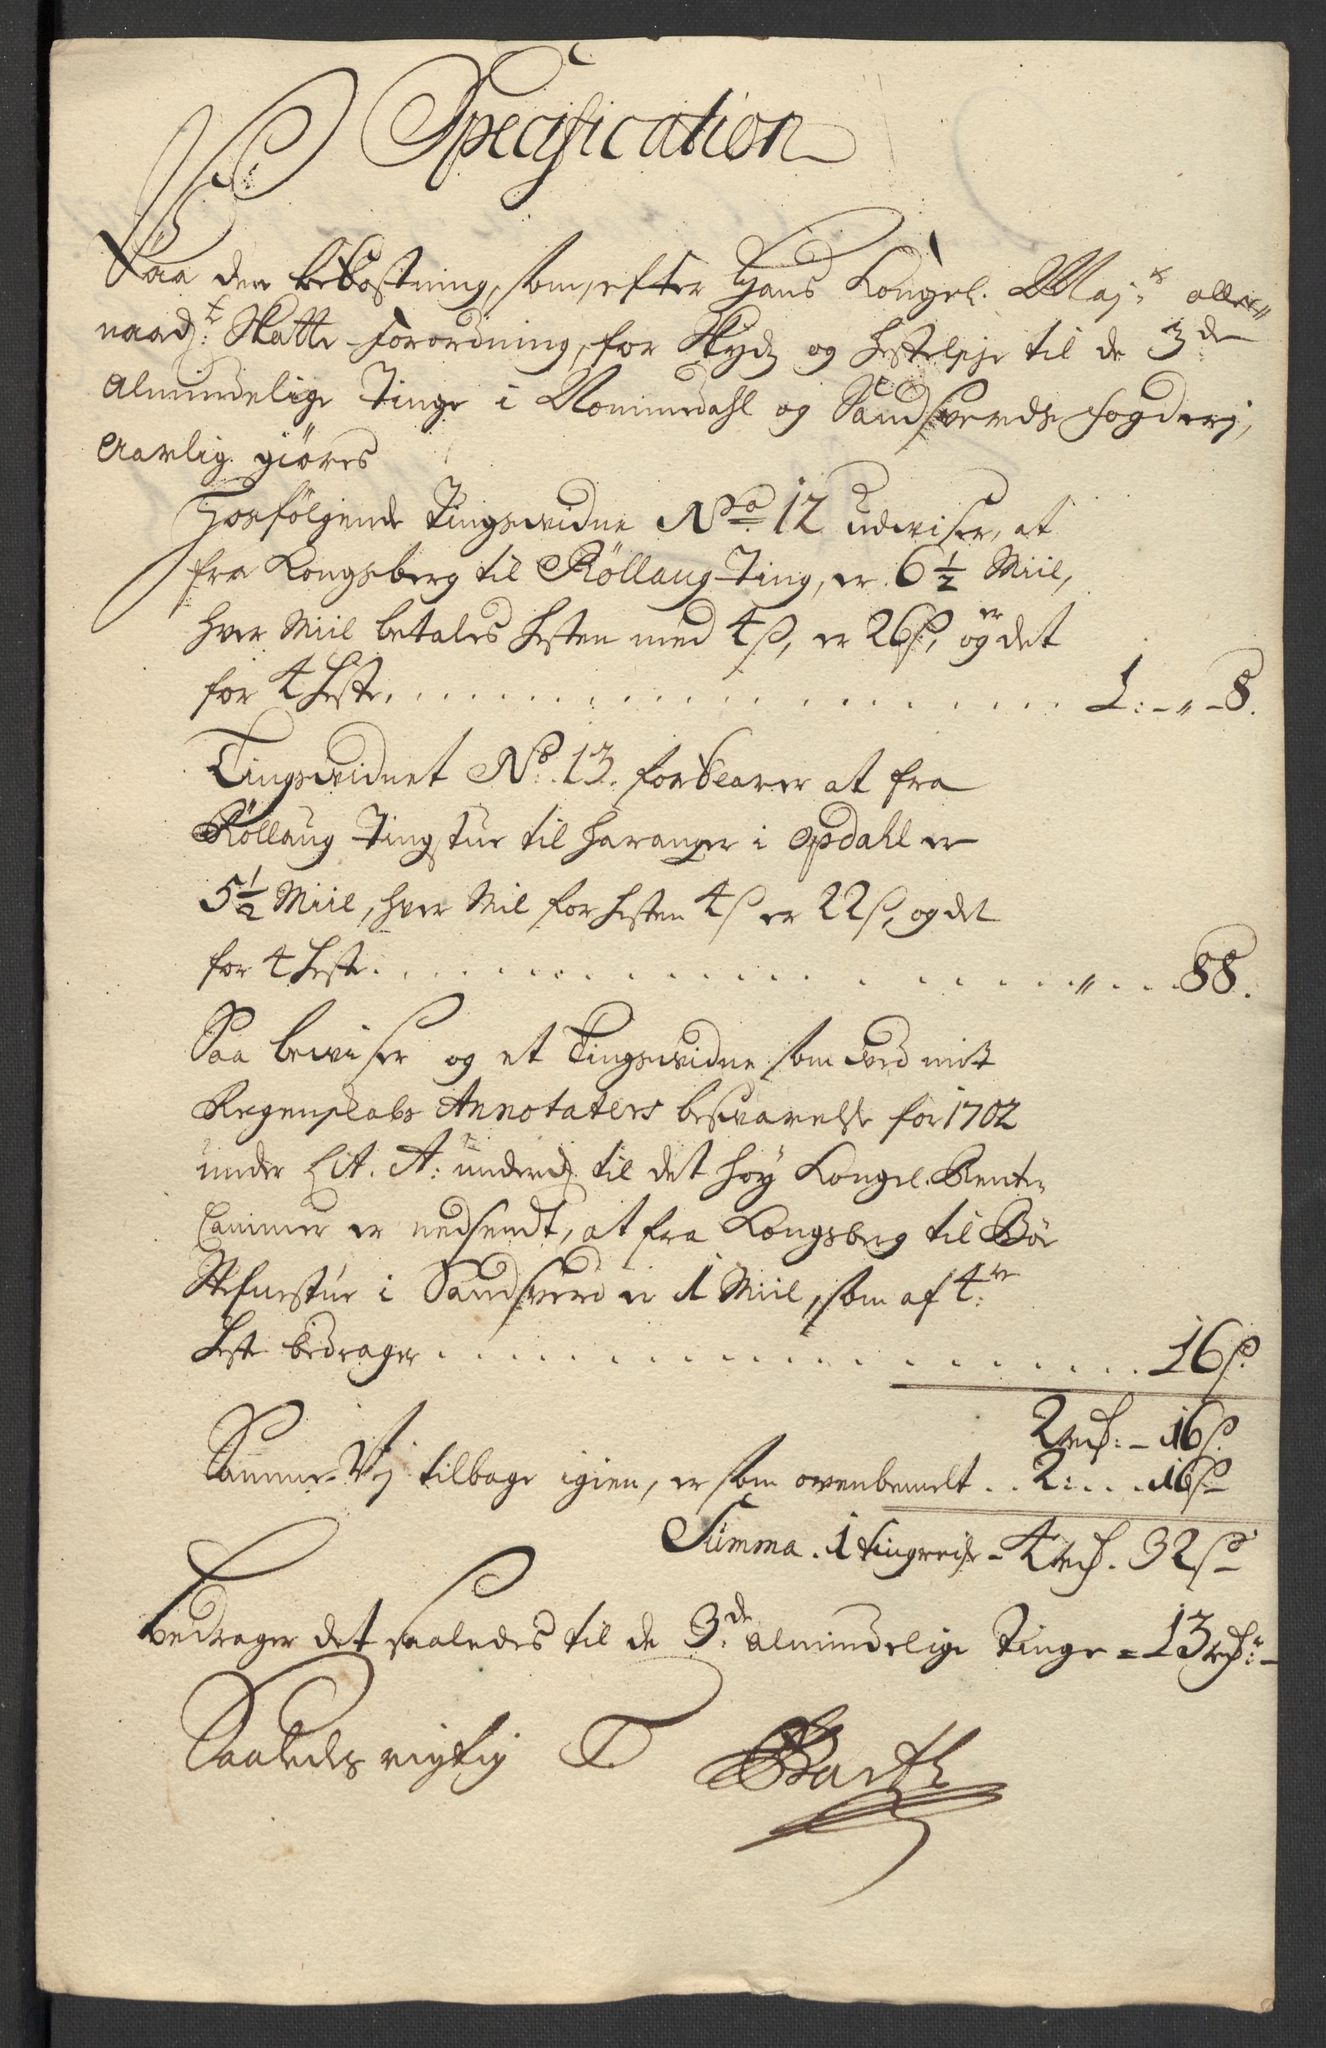 Specification
Paa den bekostning, som, efter Hans Kongel. Maj:ts aller
naad:te Skatte-forordning, for Skyds og Hesteleje til de 3de
Almindelige Tinge i Nommedahl og Sandsverds fogderj,
Aarlig giøres
Hosfølgende Tingsvidne No 12 udviser, at
fra Kongsberg til Röllaug-Ting, er 6 1/2 Miil,
hver Miil betales Hesten med 4 s, er 26 s, og er det
for 4 Heste. . . . . . . . . . 1: - " - 8.
Tingsvidnet No: 13. forklarer at fra
Röllaug Tingstue til Haranger i Opdahl er
5 1/2 Miil, hver Mil for Hesten 4 s er 22 s, og det
for 4 Heste. . . . . . . . . . " . . . 88.
Saa beviser og et Tingsvidne som ved mit
Regenskabs Annotaters besvarelse for 1702
under Lit. A: til det høy Kongel. Rente
Cammer er nedsendt, at fra Kongsberg til Bøe
Stefnestue i Sandsverd er 1 Miil, som af 4re
Heste bedrager . . . . . . . . . . 16 s.
2 rdr: - 16 s.
Samme Vej tilbage igien, er som ovenbemelt . . 2: . . . 16 s
Summa . 1 tingreise - 4 rdr. 32 s
bedrager det saaledes til de 3de almindelige Tinge = 13 rdr: -
Saaledes rigtig T. Barth